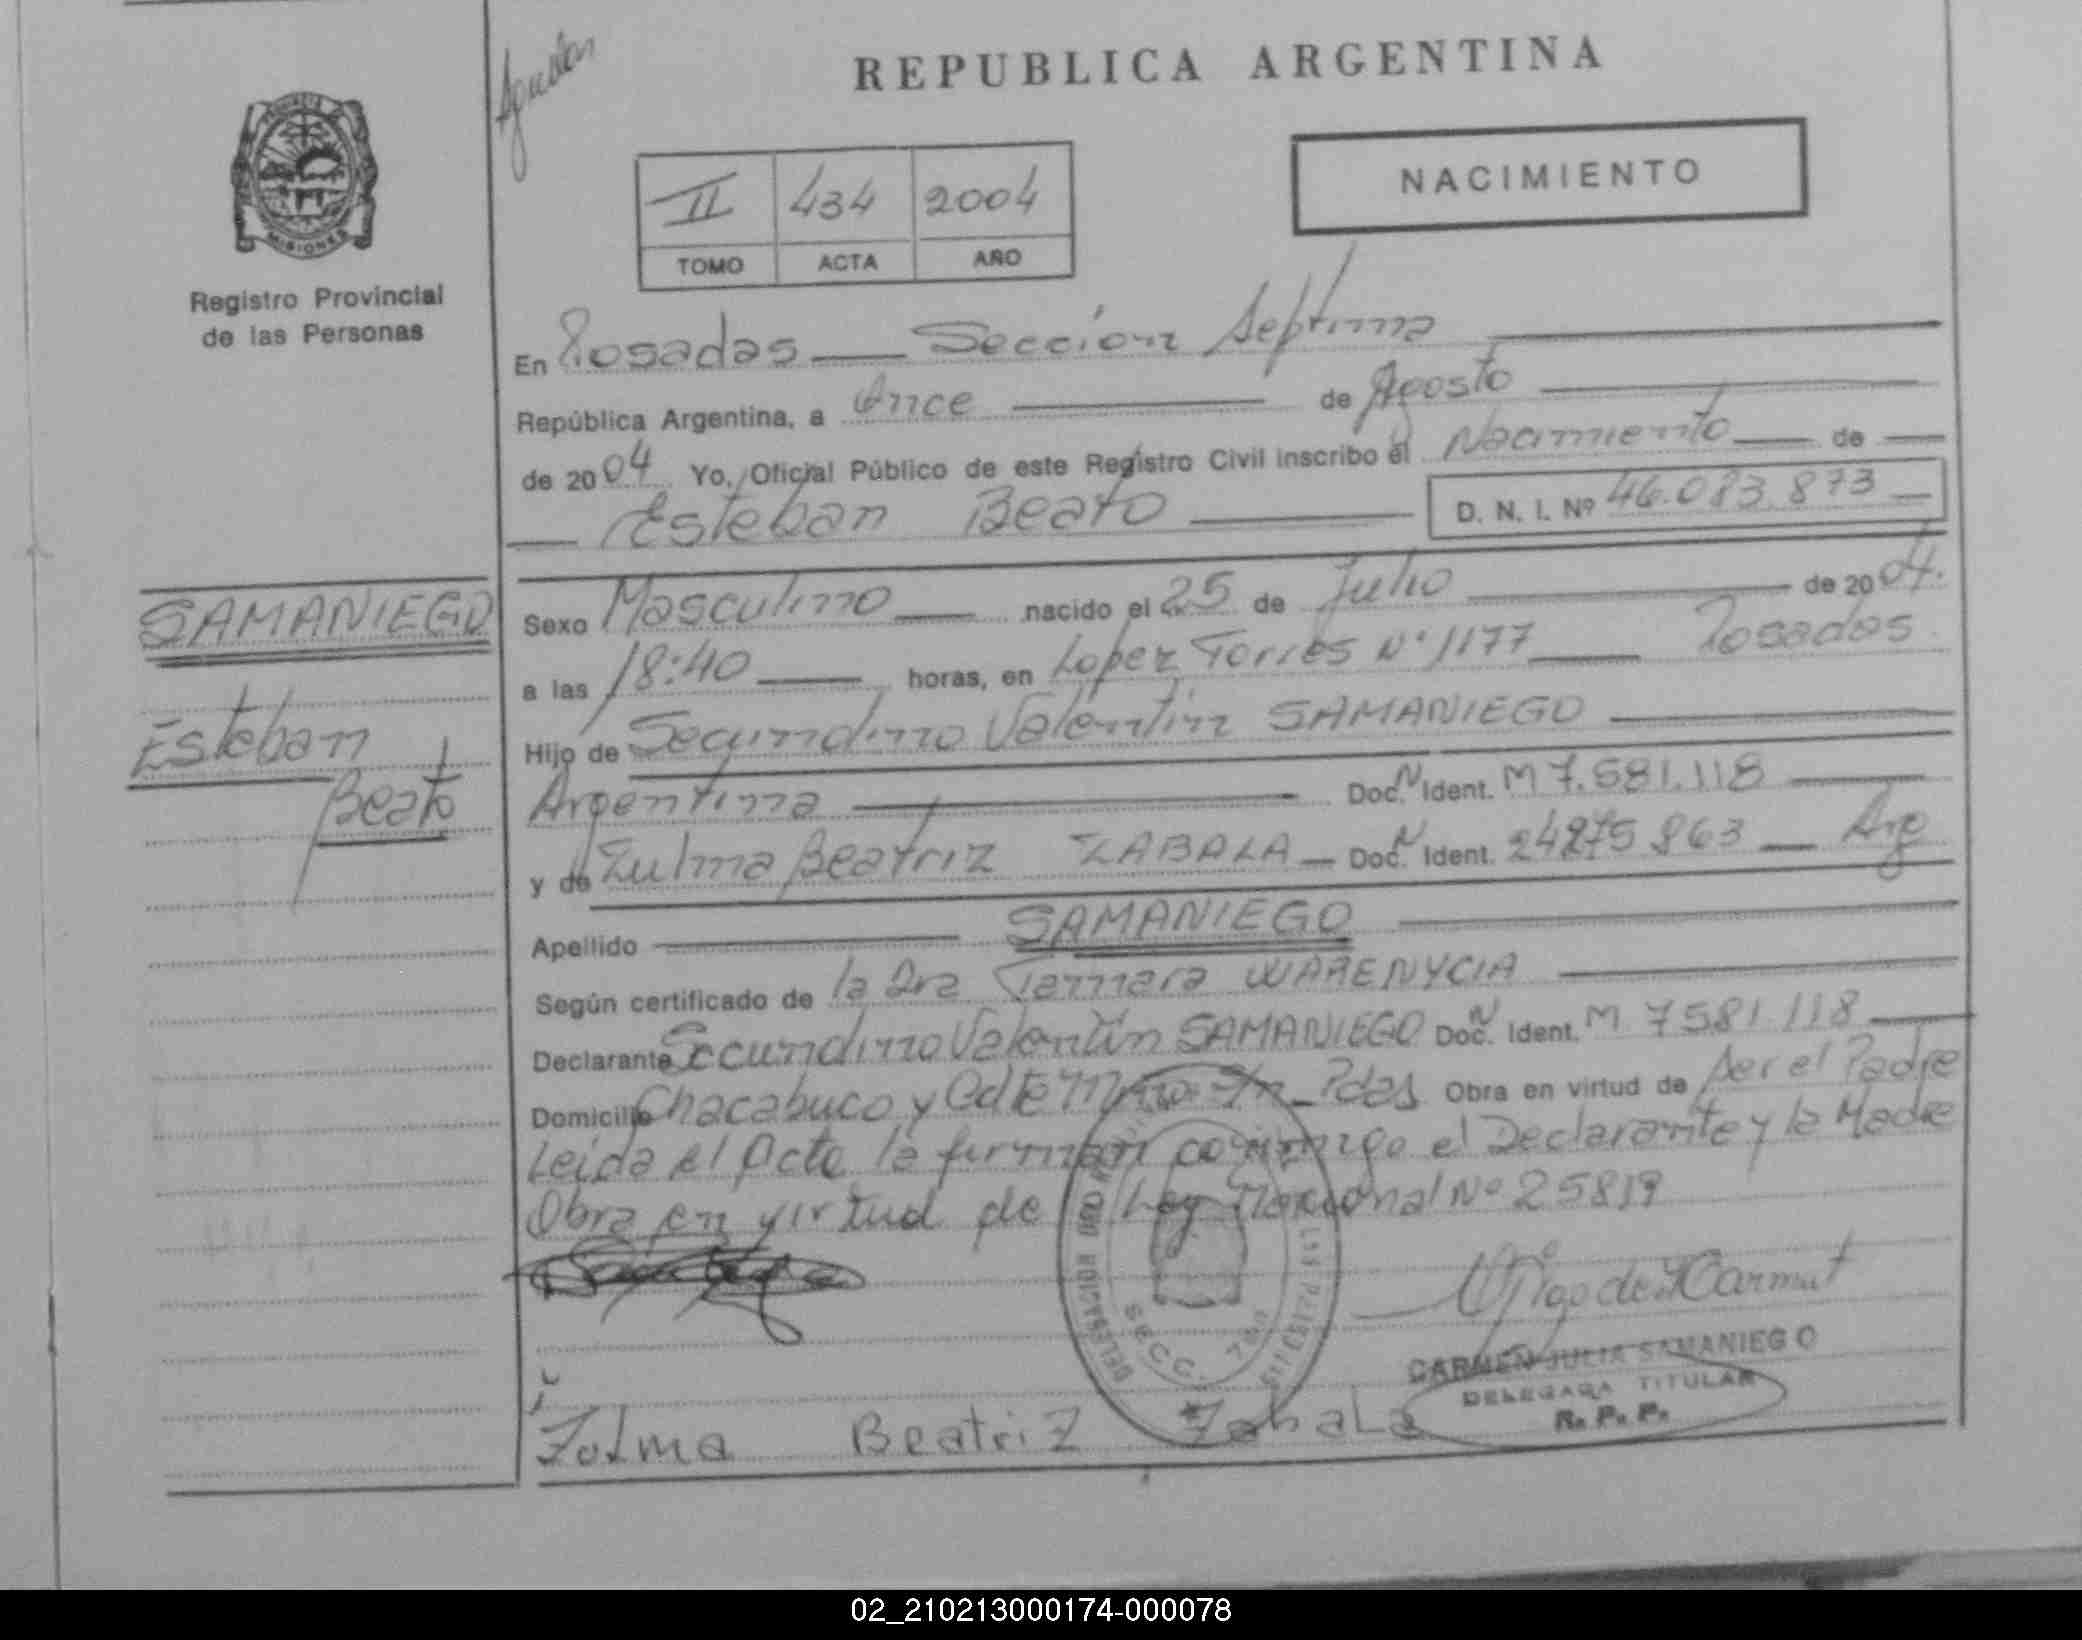 Agustín
REPUBLICA ARGENTINA
NACIMIENTO
II 434 2004
TOMO ACTA AÑO
MISIONES
Registro Provincial
de las Personas
En Posadas Sección Septima
República Argentina, a Once de Agosto
de 2004 Yo, Oficial Público de este Registro Civil inscribo el Nacimiento de
Esteban Beato D. N. I. Nº 46.083.873
SAMANIEGO
Esteban
Beato
Sexo Masculino nacido el 25 de Julio de 2004.
a las 18:40 horas, en Lopez Torres Nº 1177 Posadas
Hijo de Secundino Valentin SAMANIEGO
Argentina Doc. N Ident. M 7.581.118
y de Zulma Beatriz ZABALA Doc. N Ident. 24875863 Arg
Apellido SAMANIEGO
Según certificado de la Dra Tamara WARENYCIA
Declarante Secundino Valentin SAMANIEGO Doc. N Ident. M 7581.118
Domicilio Chacabuco y Cdte Miño S/n Pdas Obra en virtud de ser el Padre
Leída el Acta la firman conmigo el Declarante y la Madre
Obra en virtud de Ley Nacional Nº 25819
SECC. 7ma
CARMEN JULIA SAMANIEGO
DELEGADA TITULAR
R. P. P.
Zulma Beatriz Zabala
02_210213000174-000078